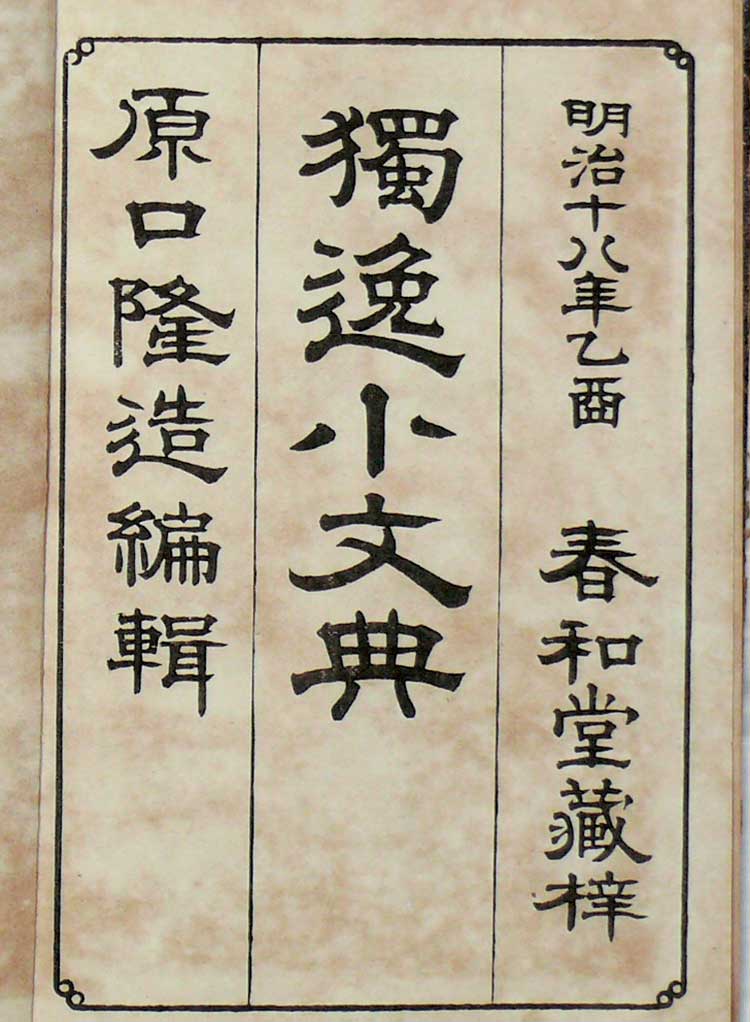 明治十八年乙酉　春和堂藏梓
獨逸小文典
原口隆造編輯